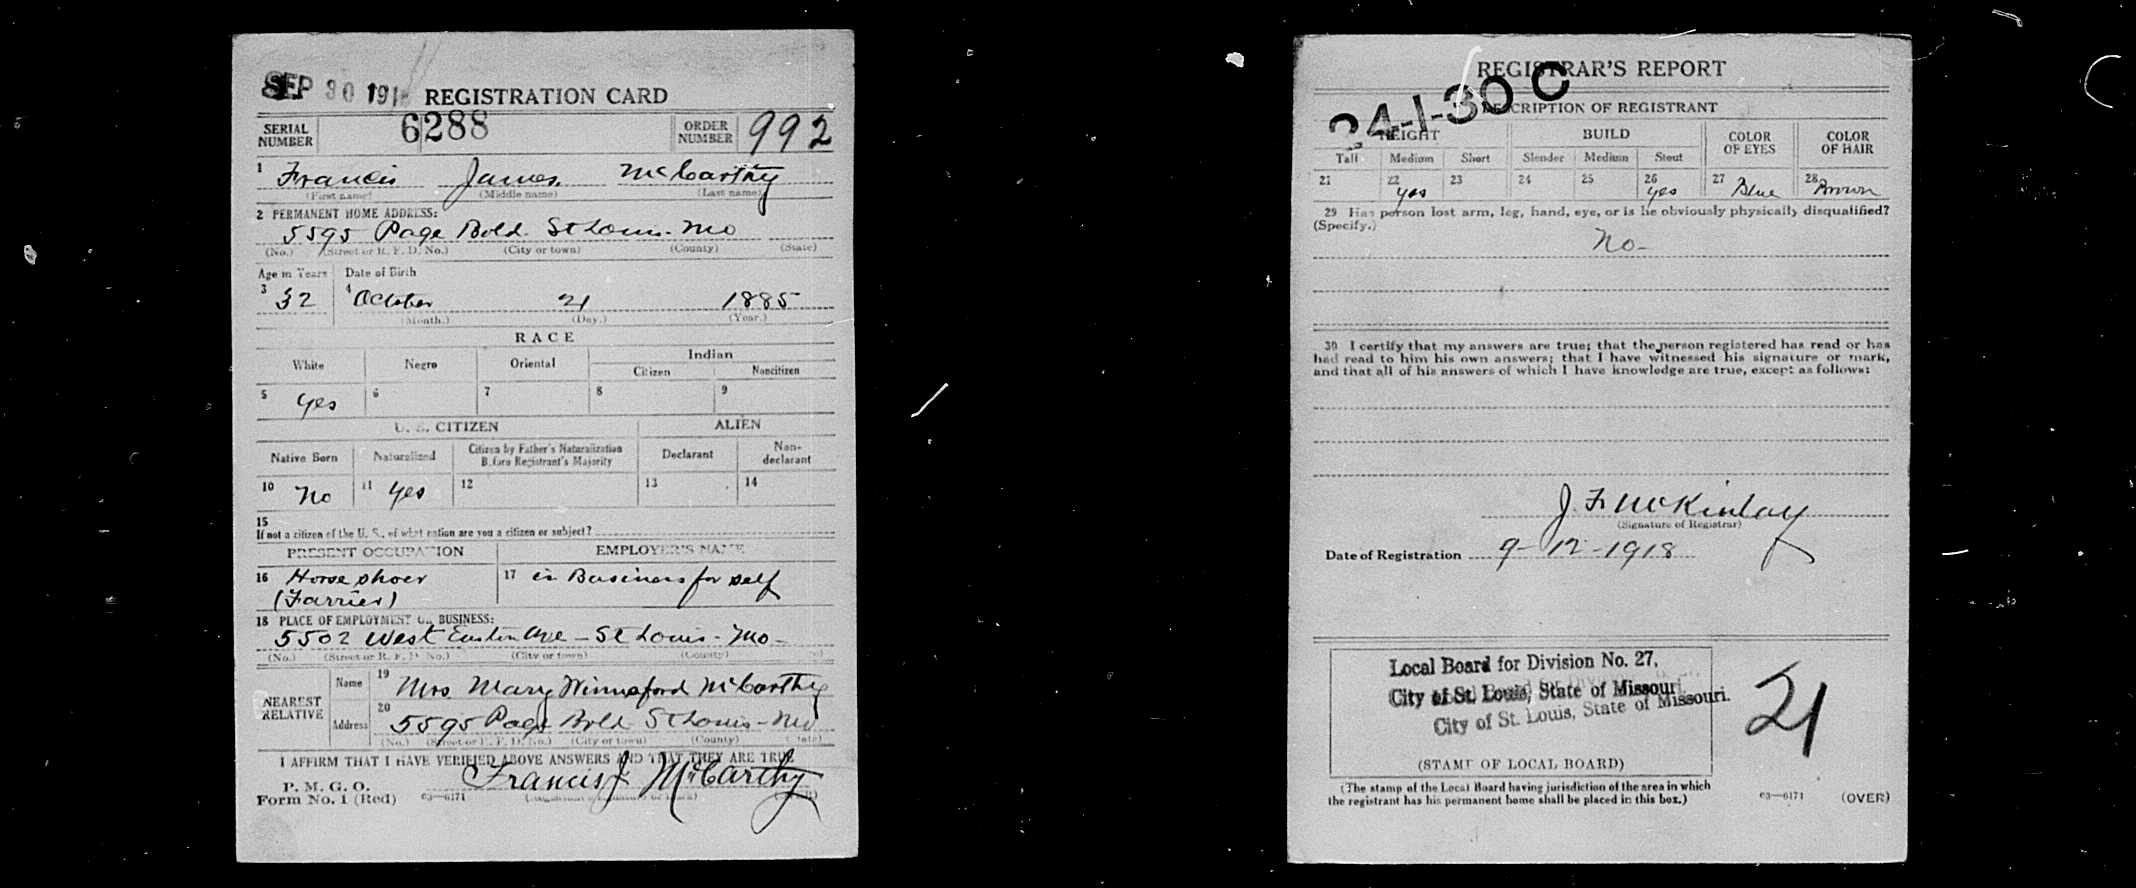 SEP 30 191
REGISTRATION CARD
SERIAL NUMBER 6288 ORDER NUMBER 992
1 Francis James McCarthy
(First name) (Middle name) (Last name)
2 PERMANENT HOME ADDRESS:
5595 Page Bold. St Louis. Mo
(No.) (Street or R. F. D. No.) (City or town) (County) (State)
Age in Years Date of Birth
3 32 4 October 21 1885
(Month.) (Day.) (Year.)
RACE
White Negro Oriental Indian
Citizen Noncitizen
5 Yes 6 7 8 9
U. S. CITIZEN ALIEN
Native Born Naturalized Citizen by Father's Naturalization Before Registrant's Majority Declarant Non-declarant
10 No 11 Yes 12 13 14
15
If not a citizen of the U. S., of what nation are you a citizen or subject?
PRESENT OCCUPATION EMPLOYER'S NAME
16 Horse shoer 17 in Business for self
(Farrier)
18 PLACE OF EMPLOYMENT OR BUSINESS:
5502 West Easton Ave - St Louis - Mo -
(No.) (Street or R. F. D. No.) (City or town) (County)
NEAREST RELATIVE
Name 19 Mrs. Mary McCarthy
Address 20 5595 Page Bold St Louis - Mo
(No.) (Street or R. F. D. No.) (City or town) (County) (State)
I AFFIRM THAT I HAVE VERIFIED ABOVE ANSWERS AND THAT THEY ARE TRUE
P. M. G. O.
Form No. 1 (Red) 03—6171 Francis J. McCarthy
REGISTRAR'S REPORT
24-1-30 C
DESCRIPTION OF REGISTRANT
HEIGHT BUILD COLOR OF EYES COLOR OF HAIR
Tall Medium Short Slender Medium Stout
21 22 Yes 23 24 25 26 Yes 27 Blue 28 Brown
29 Has person lost arm, leg, hand, eye, or is he obviously physically disqualified?
(Specify.)
No -
30 I certify that my answers are true; that the person registered has read or has
had read to him his own answers; that I have witnessed his signature or mark,
and that all of his answers of which I have knowledge are true, except as follows:
J. F. McKinlay
(Signature of Registrar)
Date of Registration 9-12-1918
Local Board for Division No. 27,
City of St. Louis, State of Missouri
City of St. Louis, State of Missouri.
21
(STAMP OF LOCAL BOARD)
(The stamp of the Local Board having jurisdiction of the area in which
the registrant has his permanent home shall be placed in this box.)
03—6171 (OVER)